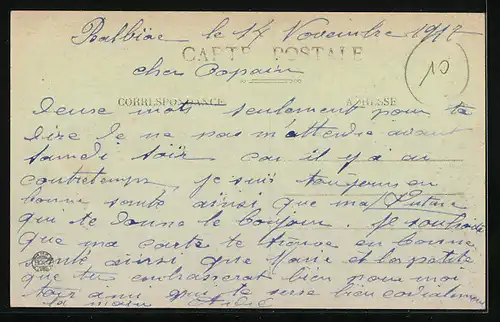 Balbiac le 14 Novembre 1917
CARTE POSTALE
10
cher Copain
CORRESPONDANCE ADRESSE
Deuse mots seulement pour te
dire de ne pas m'attendre avant
samdi soir car il y a eu
contretemps je suis toujours en
bonne sante ainsi que ma future
qui te donne le bonjour. Je souhaite
que ma carte te trouve en bonne
santé ainsi que Marie et la petite
que tu embrasserat bien pour moi
ton ami qui te serre bien cordialement
la main